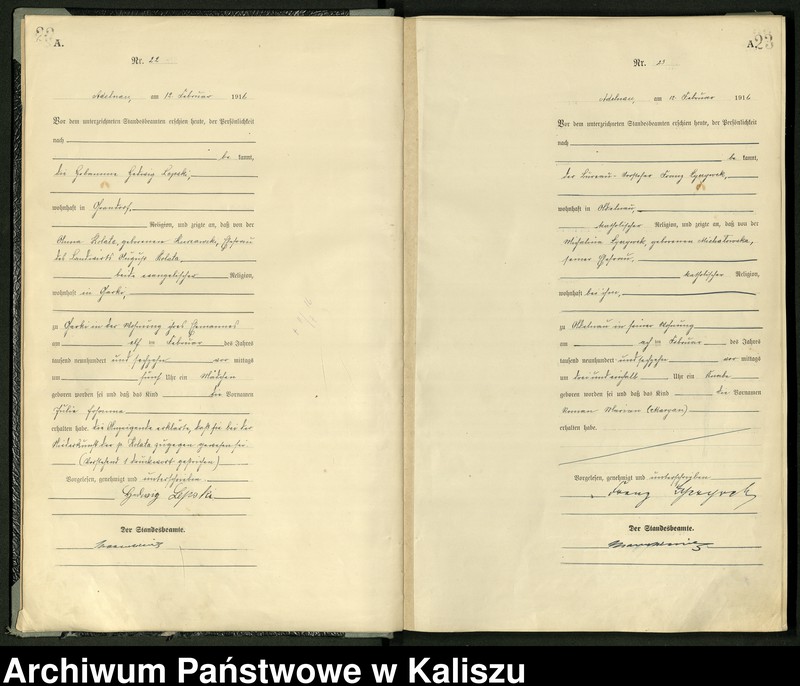 22
A.
Nr. 22
Adelnau, am 12 Februar 1916.
Vor dem unterzeichneten Standesbeamten erschien heute, der Persönlichkeit
nach
be kannt,
die Hebamme Hedwig
wohnhaft in
Religion, und zeigte an, daß von der
Anna geborenen Ehefrau
des Landwirts August
beide evangelischer Religion,
wohnhaft in Garki,
zu Garki in der Wohnung ihres Ehemannes
am elf ten Februar des Jahres
tausend neunhundert und sechzehn vor mittags
um fünf Uhr ein Mädchen
geboren worden sei und daß das Kind die Vornamen
Julie Johanna
erhalten habe. Die Anzeigende erklärte, daß sie bei der
Niederkunft der p. zugegen gewesen sei.
(Vorstehend 1 Druckwort gestrichen)
Vorgelesen, genehmigt und unterschrieben
Hedwig
Der Standesbeamte.
A.
23
Nr. 23
Adelnau, am 12 Februar 1916
Vor dem unterzeichneten Standesbeamten erschien heute, der Persönlichkeit
nach
be kannt,
der Bureau-Vorsteher Franz
wohnhaft in Adelnau,
katholischer Religion, und zeigte an, daß von der
Michalina geborenen
seiner Ehefrau,
katholischer Religion,
wohnhaft bei ihm,
zu Adelnau in seiner Wohnung
am ten Februar des Jahres
tausend neunhundert und sechzehn vor mittags
um drei und einhalb Uhr ein Knabe
geboren worden sei und daß das Kind die Vornamen
Roman Marian
erhalten habe.
Vorgelesen, genehmigt und unterschrieben
Franz
Der Standesbeamte.
Archiwum Państwowe w Kaliszu